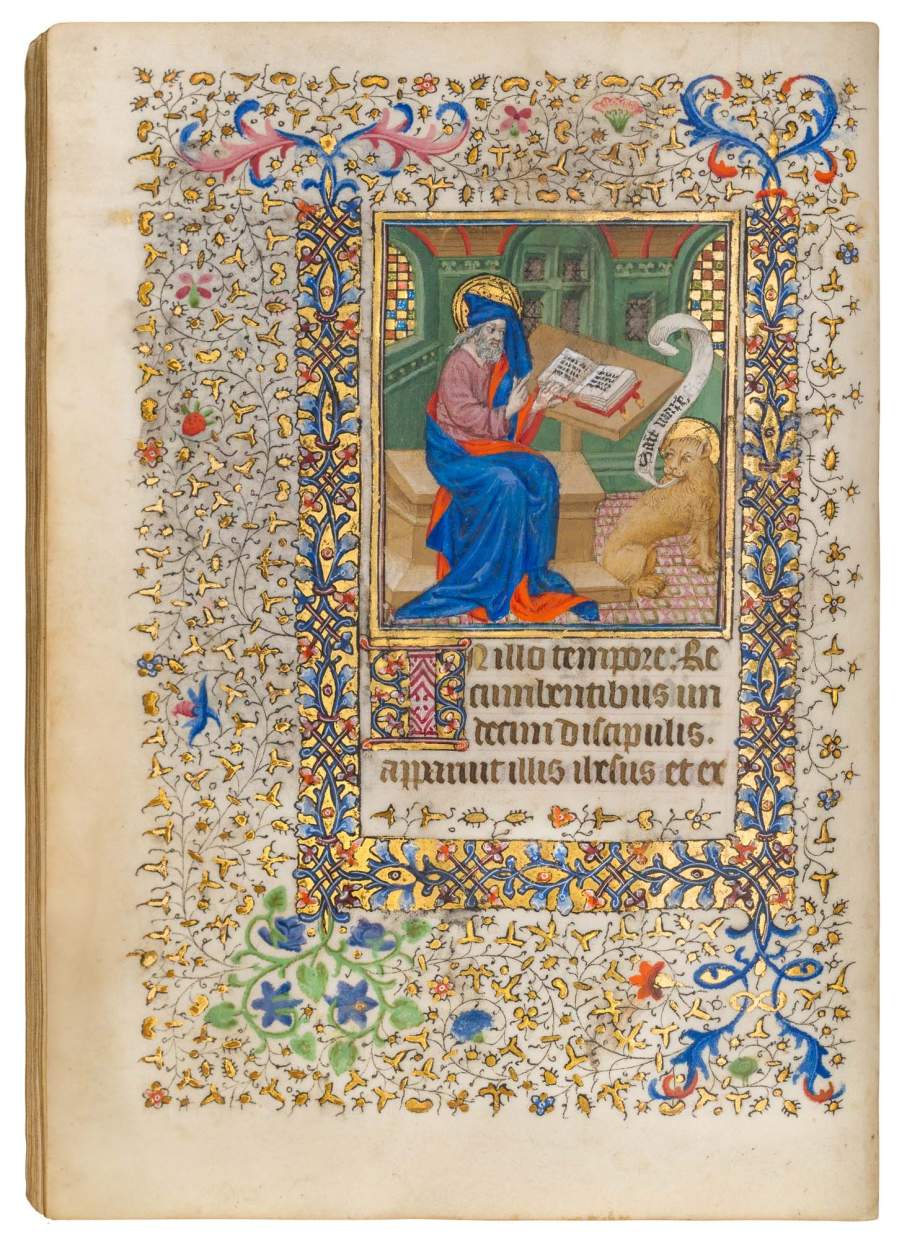 In illo tempore: Re
cumbentibus un
decim discipulis.
apparuit illis ihesus et ex